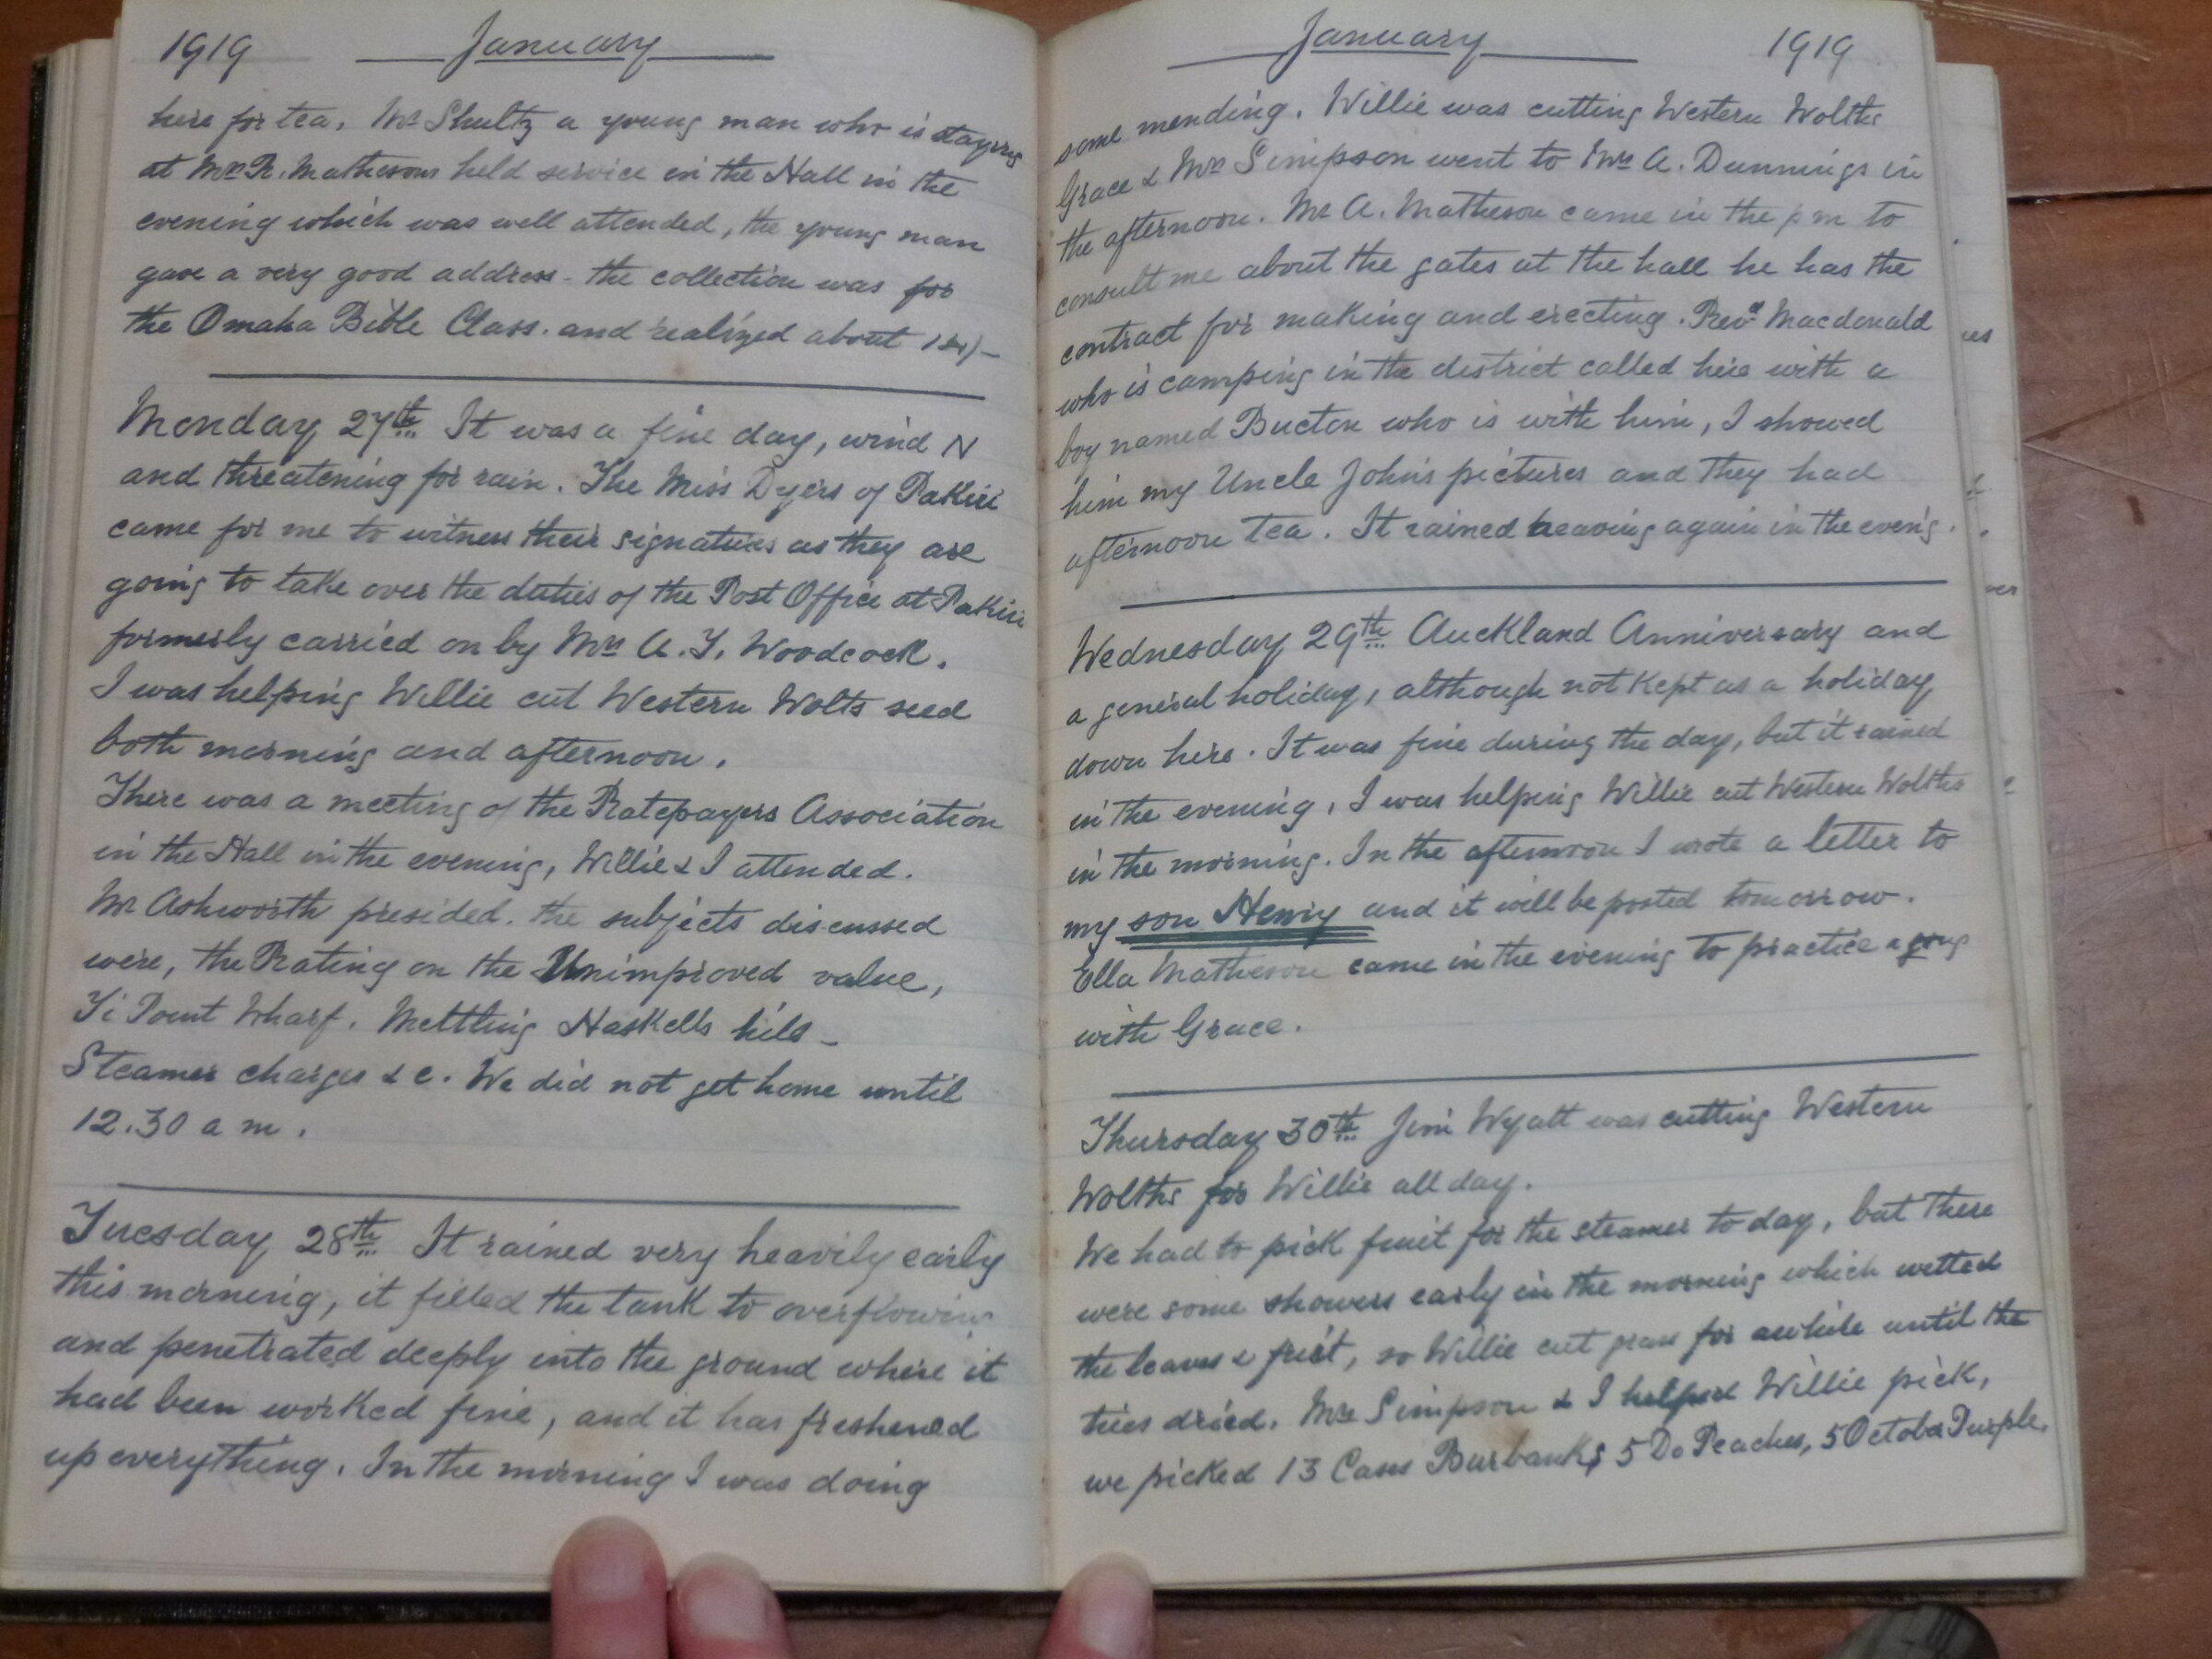 1919 January
here for tea, Mr Shultz a young man who is staying
at Mr R. Mathesons held service in the Hall in the
evening which was well attended, the young man
gave a very good address - the collection was for
the Omaha Bible Class. and realized about
Monday 27th It was a fine day, wind N
and threatening for rain. The Miss Dyers of Pakiri
came for me to witness their signatures as they are
going to take over the duties of the Post Office at Pakiri
formerly carried on by Mrs A. Y. Woodcock.
I was helping Willie cut Western Wolts seed
both morning and afternoon.
There was a meeting of the Ratepayers Association
in the Hall in the evening, Willie & I attended.
Mr Ashworth presided. the subjects discussed
were, the Rating on the Unimproved value,
Ti Point Wharf. Mettling Haskells hill -
Steamer charges & c. We did not get home until
12.30 a m.
Tuesday 28th It rained very heavily early
this morning, it filled the tank to overflowing
and penetrated deeply into the ground where it
had been worked fine, and it has freshened
up everything. In the morning I was doing
January 1919
some mending. Willie was cutting Western Wolths
Grace & Mrs Simpson went to Mrs A. Dunnings in
the afternoon. Mr A. Matheson came in the p m to
consult me about the gates at the hall he has the
contract for making and erecting. Revd Macdonald
who is camping in the district called here with a
boy named Bucton who is with him, I showed
him my Uncle John's pictures and they had
afternoon tea. It rained heaving again in the eveng.
Wednesday 29th Auckland Anniversary and
a general holiday, although not kept as a holiday
down here. It was fine during the day, but it rained
in the evening, I was helping Willie cut Western Wolths
in the morning. In the afternoon I wrote a letter to
my son Henry and it will be posted tomorrow.
Ella Matheson came in the evening to practice a song
with Grace.
Thursday 30th Jim Wyatt was cutting Western
Wolths for Willie all day.
We had to pick fruit for the steamer to day, but there
were some showers early in the morning which wetted
the leaves & fruit, so Willie cut grass for awhile until the
trees dried. Mrs Simpson & I helped Willie pick,
we picked 13 Cases Burbanks 5 Do Peaches, 5 October Purple.